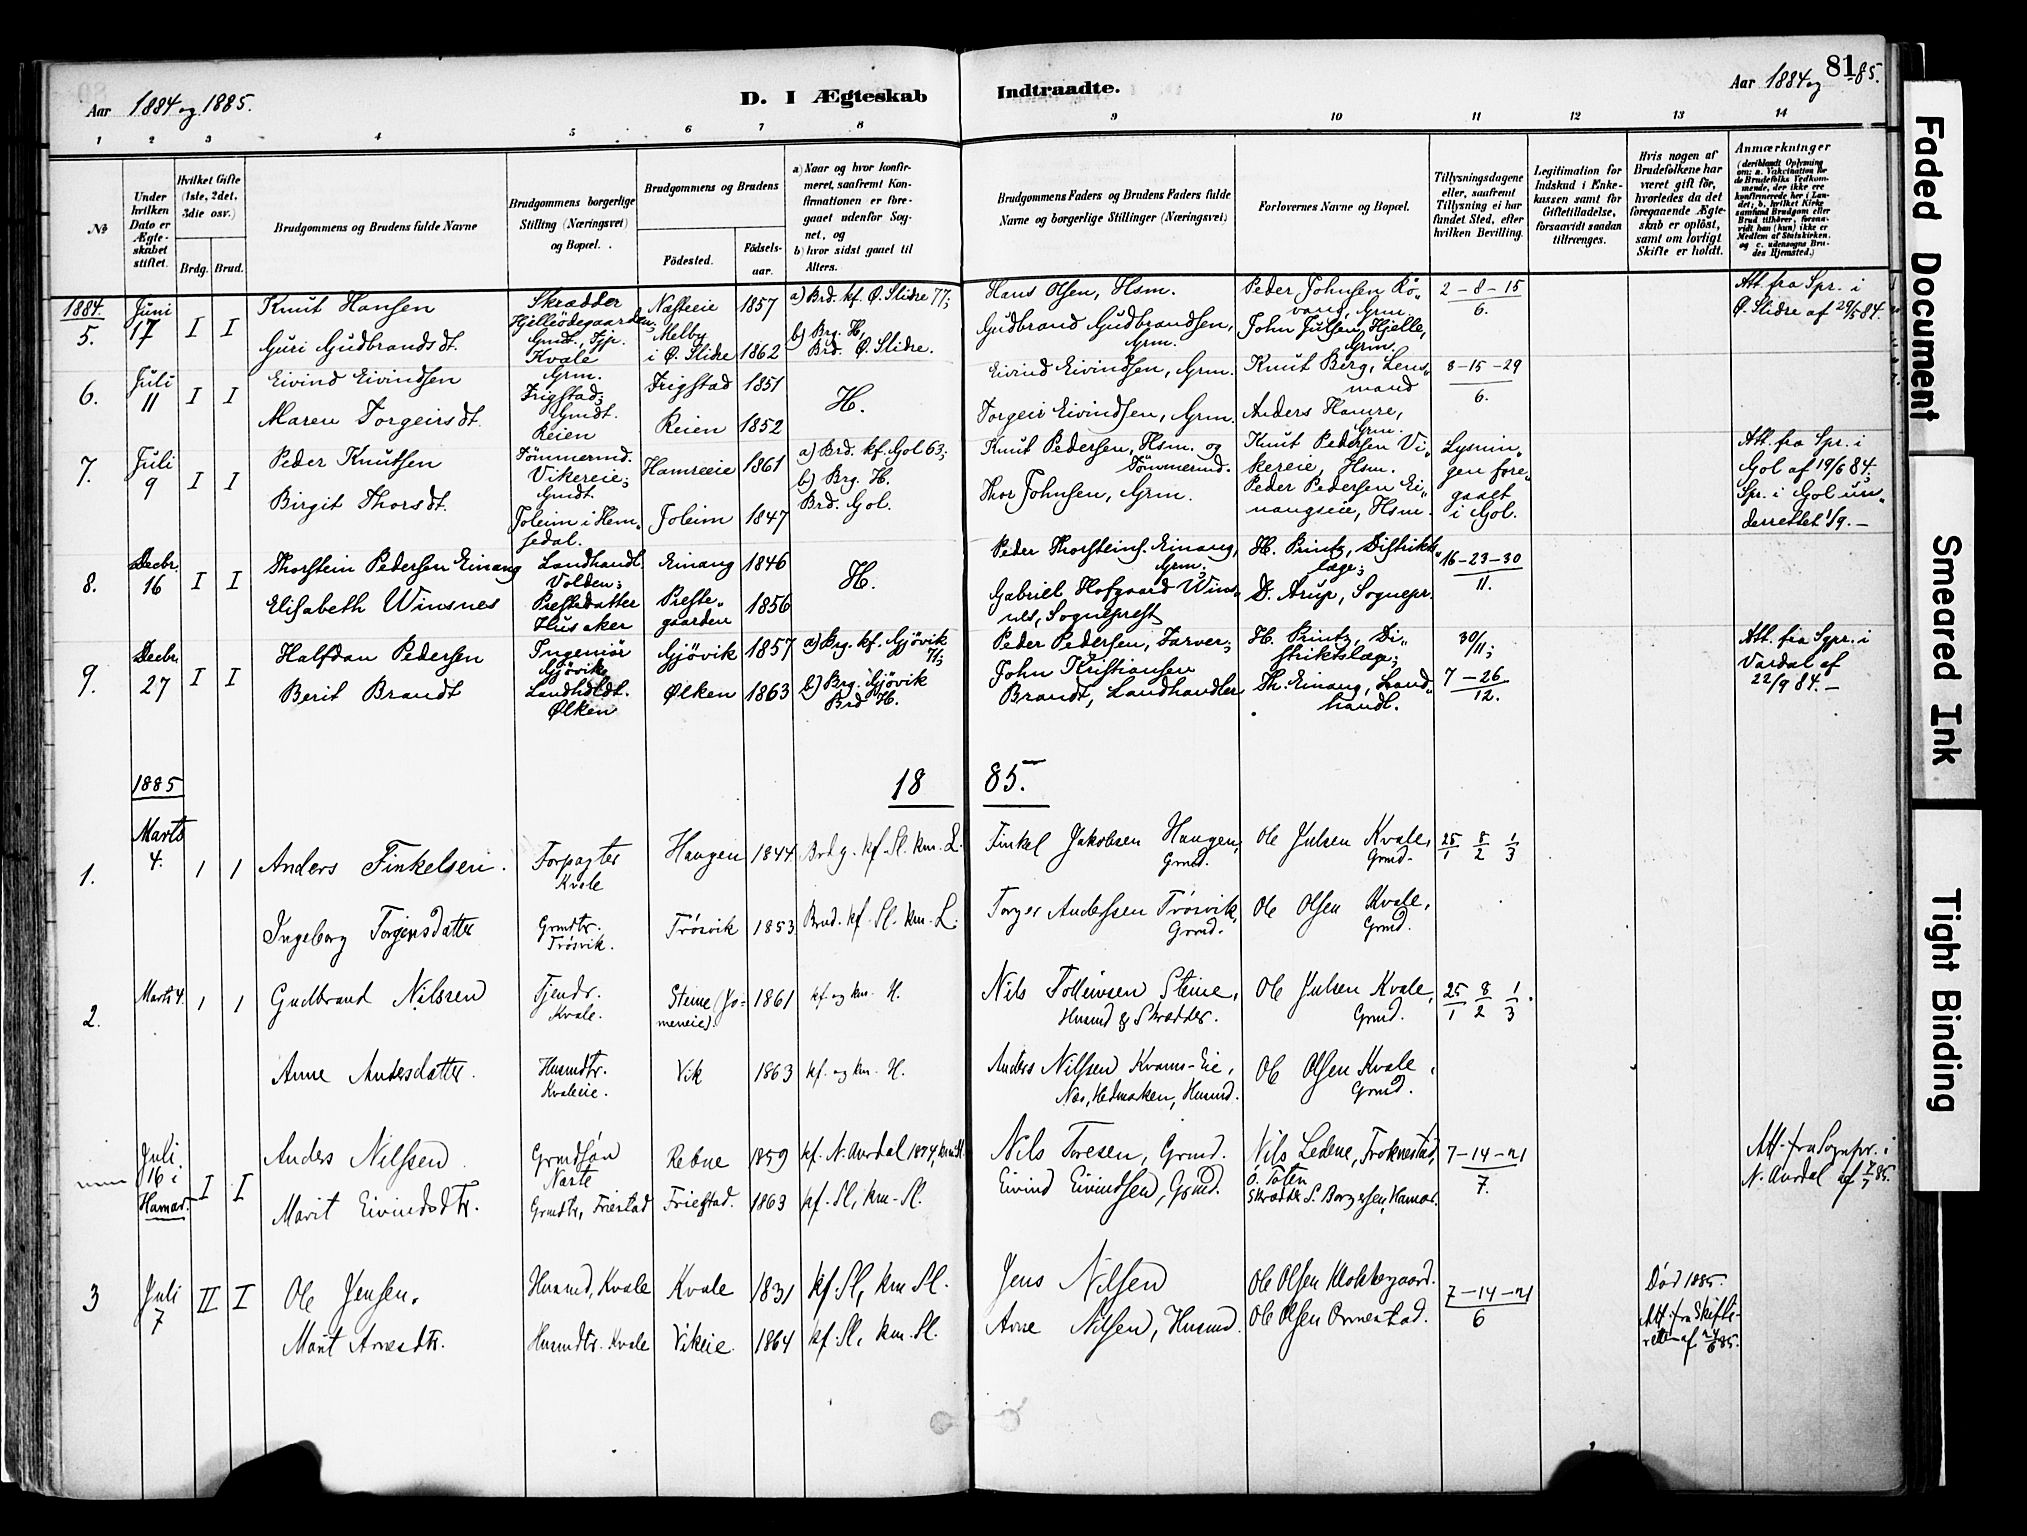 81
Aar 1884 og 1885.
D. I Ægteskab
Indtraadte.
Aar 1884 og 85.
1 2 3 4 5 6 7 8 9 10 11 12 13 14
№
Under hvilken Dato er Ægteskabet stiftet.
Hvilket Gifte (1ste, 2det, 3die osv.)
Brdg. Brud.
Brudgommens og Brudens fulde Navne
Brudgommens borgerlige Stilling (Næringsvei) og Bopæl.
Brudgommens og Brudens
Födested.
Födsels-aar.
a) Naar og hvor konfirmeret, saafremt Konfirmationen er foregaaet udenfor Sognet, og
b) hvor sidst gaaet til Alters.
Brudgommens Faders og Brudens Faders fulde Navne og borgerlige Stillinger (Næringsvei)
Forlovernes Navne og Bopæl.
Tillysningsdagene eller, saafremt Tillysning ei har fundet Sted, efter hvilken Bevilling.
Legitimation for Indskud i Enkekassen samt for Giftetilladelse, forsaavidt saadan tiltrænges.
Hvis nogen af Brudefolkene har været gift för, hvorledes da det foregaaende Ægteskab er oplöst, samt om lovligt Skifte er holdt.
Anmærkninger
1884.
5.
Juni 17
I I
Knut Hansen
Guri Gudbrandsdt.
Skrædder
Kvale
Næsseie 1857
Melby i Ø. Slidre 1862
a) Brd. kf. Ø. Slidre 77;
b) Brg. H.
Brd. Ø. Slidre.
Hans Olsen, Hsm.
Gudbrand Gudbrandsen, Grm.
Peder Johnsen Rövang, Grm.
John Julsen, Hjelle, Grm.
2-8-15
6.
Att. fra Spr. i Ø. Slidre af 29/5 84.
6.
Juli 11
I I
Eivind Eivindsen
Maren Torgeirsdt.
Grm.
Frigstad;
Gmdt.
Reien
Frigstad 1851
Reien 1852
H.
Eivind Eivindsen, Grm.
Torgeir Eivindsen, Grm.
Knut Berg, Lensmand
Anders Hamre, Grm.
8-15-29
6.
7.
Juli 9
I I
Peder Knutsen
Birgit Thorsdt.
Tömmermd.
Vikereie;
Gmdt.
Joleim i Hemsedal.
Hamreeie 1861
Joleim 1847
a) Brd. kf. Gol 63;
b) Brg. H.
Brd. Gol.
Knut Pedersen, Hsm. og Tömmermd.
Thor Johnsen, Grm.
Knut Pedersen Vikereie, Hsm.
Peder Pedersen Einangseie, Hsm.
Lysningen foregaaet i Gol.
Att. fra Spr. i Gol af 19/6 84.
Spr. i Gol underrettet 1/9. —
8.
Decbr. 16
I I
Thorstein Pedersen Einang
Elisabeth Winsnes
Landhandl.
Volden;
Prestedatter
Husaker
Einang 1846
Prestegaarden 1856
H.
Peder Thorsteins. Einang, Grm.;
Gabriel Hofgaard Winsnes, Sogneprest
H. Printz, Distriktslæge;
D. Arup, Sognepr.
16-23-30
11.
9.
Decbr. 27
I I
Halfdan Pedersen
Berit Brandt
Ingeniör
Gjövik
Landhdldt.
Ølken
Gjövik 1857
Ølken 1863
a) Brg. kf. Gjövik 71;
b) Brg. Gjövik
Brd H.
Peder Pedersen, Farver;
John Kristiansen Brandt, Landhandler
H. Printz, Distriktslæge;
Th. Einang, Landhandl.
30/11;
7-26
12.
Att. fra Spr. i Vardal af 22/9 84. —
1885
18 85.
1.
Marts 4.
1 1
Anders Finkelsen.
Ingeborg Torgersdatter
Forpagter
Kvale
Grmdtr.
Trösvik.
Haugen 1844
Trösvik 1853
Brdg. kf. Sl. km. L.
Brud. kf. Sl. km. L.
Finkel Jakobsen Haugen, Grmd.
Torger Andersen Trösvik, Grmd.
Ole Julsen Kvale, Grmd.
Ole Olsen Kvale, Grmd.
25/1 8/2 1/3
2.
Marts 4.
1 1
Gudbrand Nilsren
Anne Andersdatter.
Tjendr.
Kvale.
Husmdtr.
Kvaleeie.
Steine (Jomeneie). 1861
Vik 1863
kf. og km. H.
kf. og km. H.
Nils Tollevsen Steine, Husmd & Skrædder.
Anders Nilssen Kvams-Eie, Næs, Hedmarken, Husmd.
Ole Julsen Kvale, Grmd.
Ole Olsen Kvale, Grmd.
25/1 8/2 1/3
Juli 16 i Hamar.
I I
Anders Nilssen
Marit Eivindsdtr.
Grmdsön
Narte
Grmdtr, Friestad
Rebne 1859
Friestad. 1863
kf. N. Aurdal 1874, km Sl.
kf. Sl, km. Sl.
Nils Toresen, Grmd.
Eivind Eivindsen, Grmd.
Nils Ledene, Froknestad, Ö. Toten
Skrædder S. Borgersen, Hamar.
7-14-21
7.
Att. fra Sognpr. i N. Aurdal af 7/7 85.
3
Juli 7
II I
Ole Jensen.
Marit Arnesdtr.
Husmd, Kvale
Husmdtr. Kvale
Kvale 1831
Vikeie. 1864
kf Sl, km Sl.
kf. Sl, km. Sl.
Jens Nilsen
Arne Nilsen, Husmd.
Ole Olsen Klokkergaard.
Ole Olsen Ormestad.
7-14-21
6
Död 1885.
Att. fra Skifteretten af 24/6 85.
Faded Document
Smeared Ink
Tight Binding